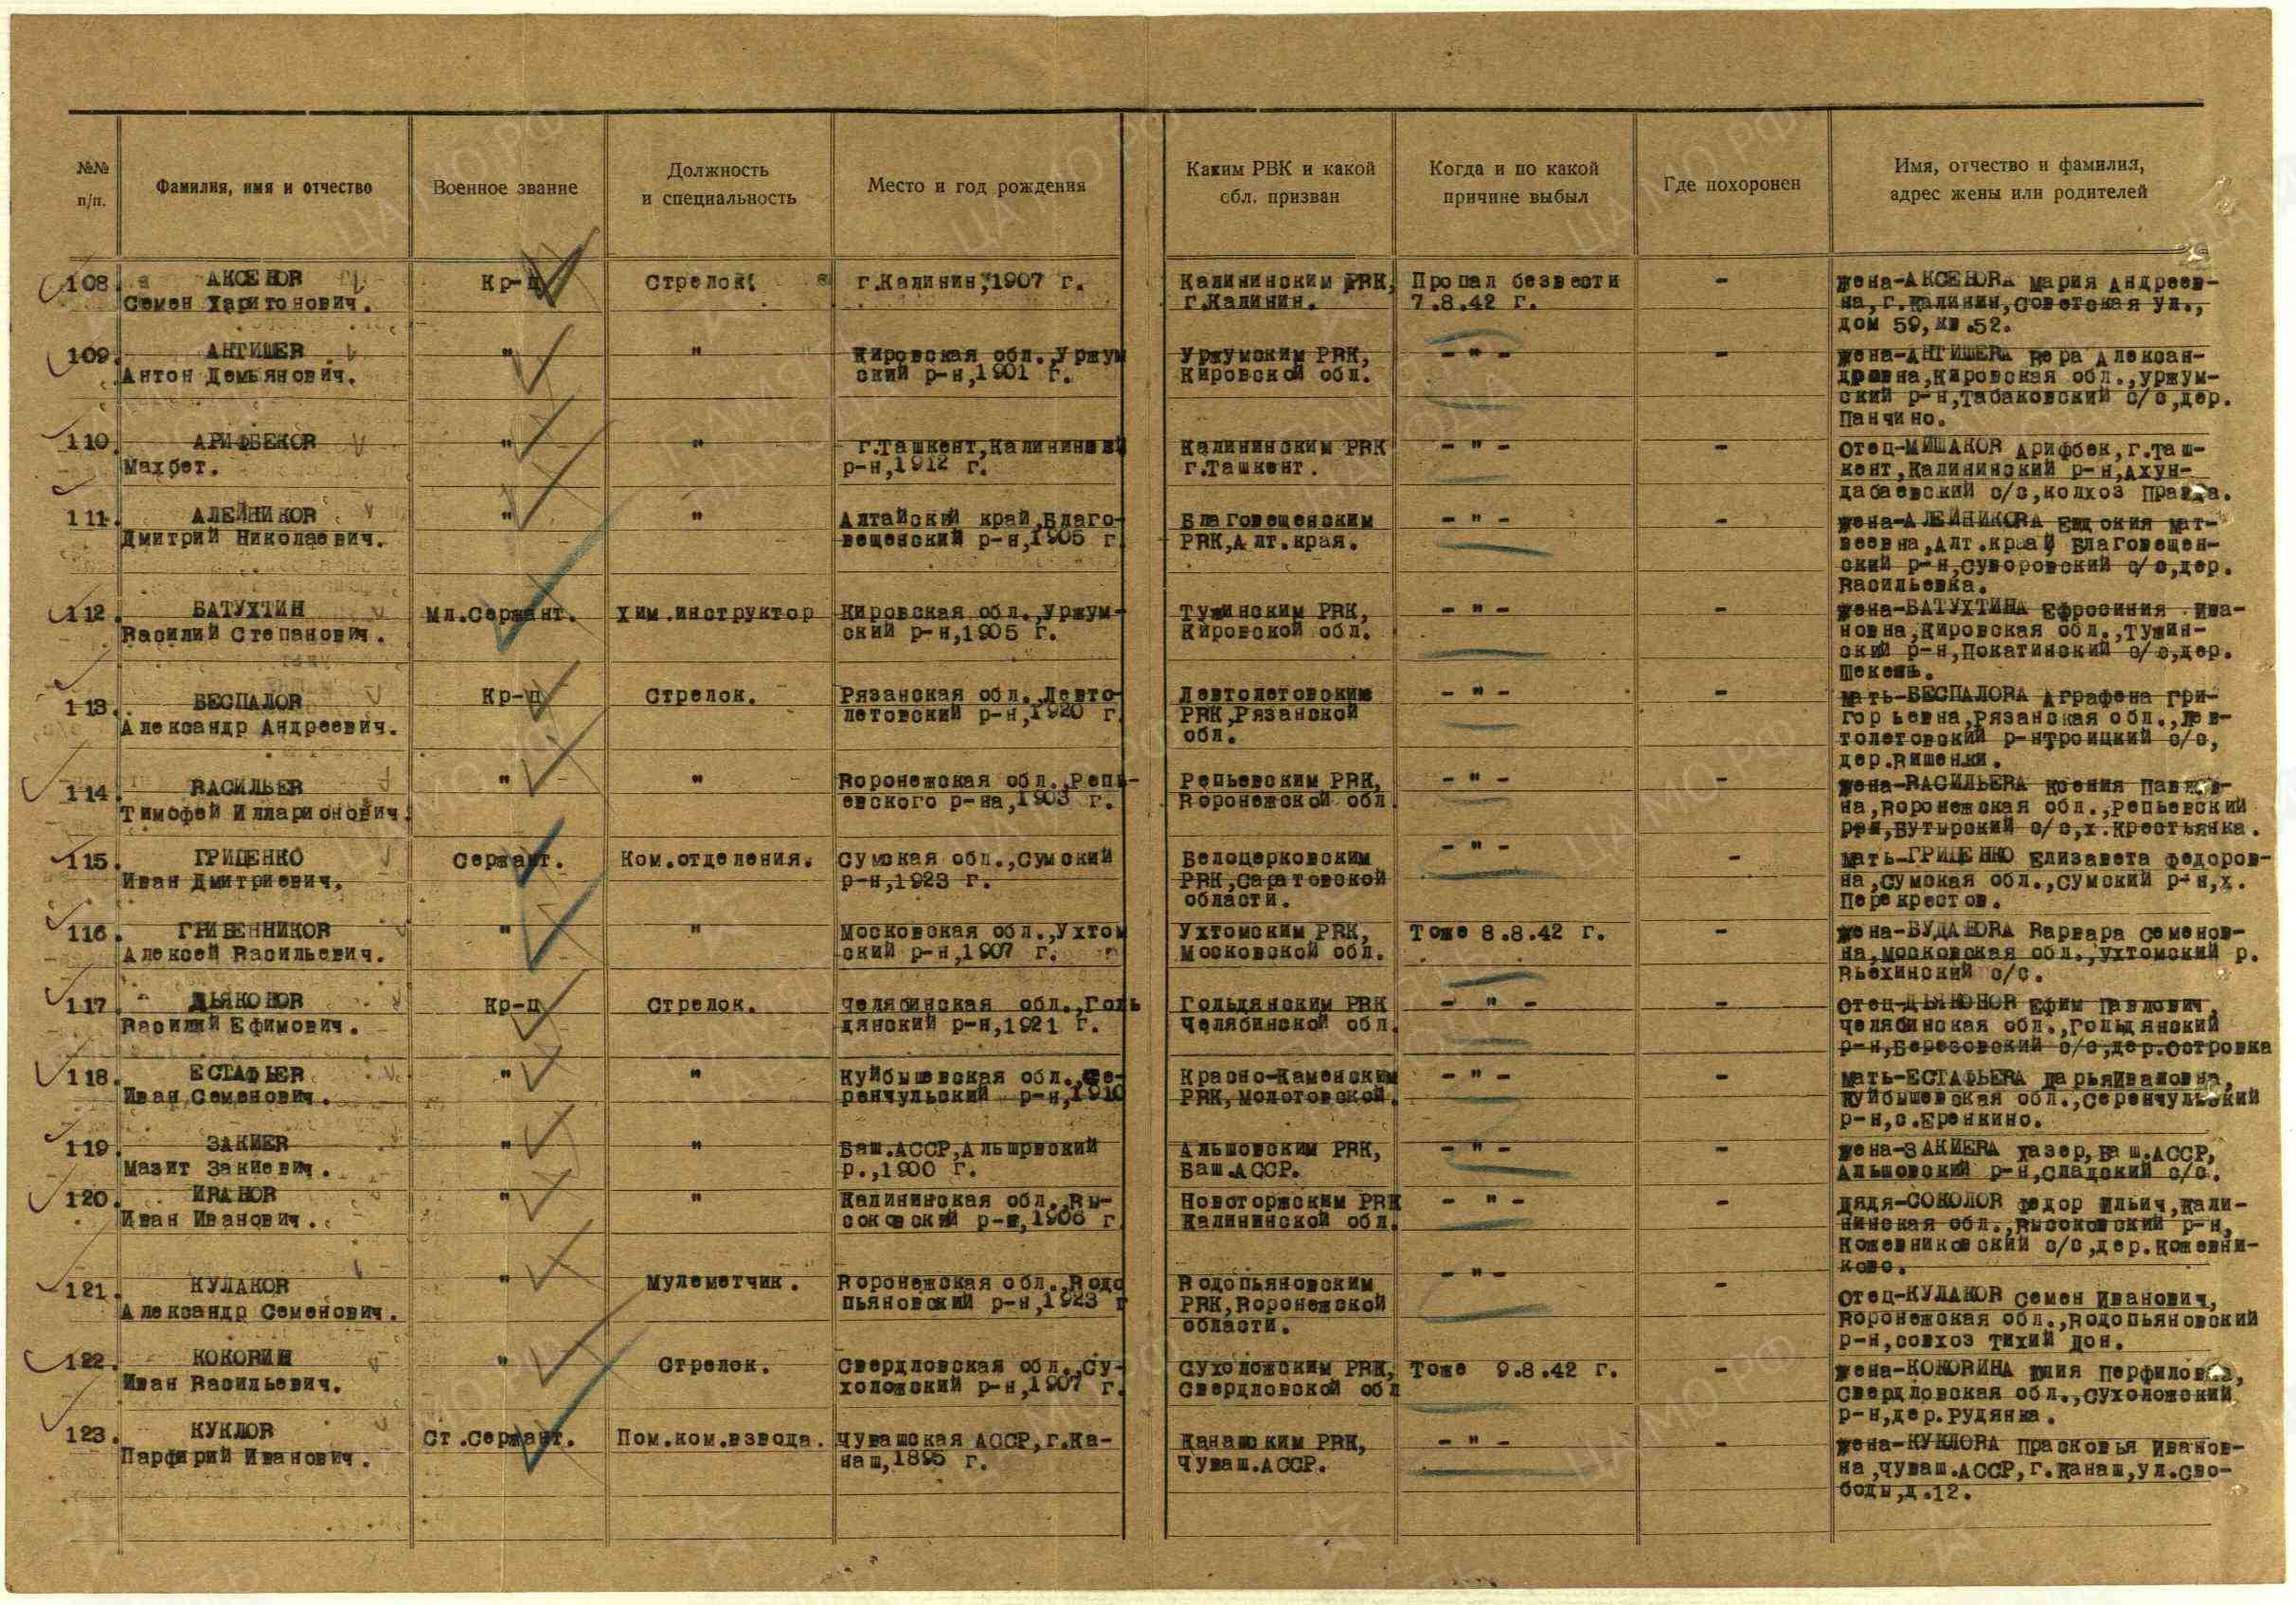 №№ п/п.
Фамилия, имя и отчество
Военное звание
Должность
и специальность
Место и год рождения
Каким РВК и какой
обл. призван
Когда и по какой
причине выбыл
Где похоронен
Имя, отчество и фамилия,
адрес жены или родителей
108. АКСЕНОВ Кр-ц Стрелок. г.Калинин,1907 г. Калининским РВК, Пропал безвести - жена-АКСЕНОВА Мария Андреев-
Семен Харитонович. г.Калинин. 7.8.42 г. на,г.Калинин,Советская ул.,
дом 59,кв.52.
109. АНТИШЕВ " " Кировская обл.,Уржум Уржумским РВК, - " - - жена-АНТИШЕВА Вера Алексан-
Антон Демьянович. ский р-н,1901 г. Кировской обл. дровна,Кировская обл.,Уржум-
ский р-н,Табаковский с/с,дер.
Панчино.
110. АРИФБЕКОВ " " г.Ташкент,Калининский Калининским РВК - " - - отец-МИШАКОВ Арифбек,г.Таш-
Махбет. р-н,1912 г. г.Ташкент. кент,Калининский р-н,Ахун-
дабаевский с/с,колхоз Правда.
111. АЛЕЙНИКОВ " " Алтайский край,Благо- Благовещенским - " - - жена-АЛЕЙНИКОВА Евдокия Мат-
Дмитрий Николаевич. вещенский р-н,1905 г РВК,Алт.края. веевна,Алт.край Благовещен-
ский р-н,Суворовский с/с,дер.
Васильевка.
112. БАТУХТИН Мл.Сержант. Хим.инструктор Кировская обл.,Уржум- Тужинским РВК, - " - - жена-БАТУХТИНА Ефросиния Ива-
Василий Степанович. ский р-н,1905 г. Кировской обл. новна,Кировская обл.,Тужин-
ский р-н,Покатинский с/с,дер.
Шекень.
113. БЕСПАЛОВ Кр-ц Стрелок. Рязанская обл.,Левто- Левтолетовским - " - - мать-БЕСПАЛОВА Аграфена Гри-
Александр Андреевич. летовский р-н,1920 г. РВК,Рязанской горьевна,Рязанская обл.,Лев-
обл. толетовский р-нТроицкий с/с,
дер.Вишенки.
114. ВАСИЛЬЕВ " " Воронежская обл.,Репь- Репьевским РВК, - " - - жена-ВАСИЛЬЕВА Ксения Павлов-
Тимофей Илларионович. евского р-на,1903 г. Воронежской обл на,Воронежская обл.,Репьевский
р-н,Бутырский с/с,х.Крестьянка.
115. ГРИЦЕНКО Сержант. Ком.отделения. Сумская обл.,Сумский Белоцерковским - " - - мать-ГРИЦЕНКО Елизавета Федоров-
Иван Дмитриевич. р-н,1923 г. РВК,Саратовской на,Сумская обл.,Сумский р-н,х.
области. Перекрестов.
116. ГРИБЕННИКОВ " " Московская обл.,Ухтом Ухтомским РВК, Тоже 8.8.42 г. - жена-БУДАНОВА Варвара Семенов-
Алексей Васильевич. ский р-н,1907 г. Московской обл. на,Московская обл.,Ухтомский р.
Вьехинский с/с.
117. ДЬЯКОНОВ Кр-ц Стрелок. Челябинская обл.,Голь Гольдянским РВК - " - - отец-ДЬЯКОНОВ Ефим Павлович,
Василий Ефимович. дянский р-н,1921 г. Челябинской обл. Челябинская обл.,Гольдянский
р-н,Березовский с/с,дер.Островка
118. ЕСТАФЬЕВ " " Куйбышевская обл.,Се- Красно-Каменским - " - - мать-ЕСТАФЬЕВА ДарьяИвановна,
Иван Семенович. ренчульский р-н,1910 РВК,Молотовской. Куйбышевская обл.,Серенчульский
р-н,с.Еренкино.
119. ЗАКИЕВ " " Баш.АССР,Альшрвский Альшовским РВК, - " - - жена-ЗАКИЕВА Хазер,Баш.АССР,
Мазит Закиевич. р.,1900 г. Баш.АССР. Альшовский р-н,Сладский с/с.
120. ИВАНОВ " " Калининская обл.,Вы- Новоторжским РВК - " - - дядя-СОКОЛОВ Федор Ильич,Кали-
Иван Иванович. соковский р-н,1906 г Калининской обл. нинская обл.,Высоковский р-н,
Кожевниковский с/с,дер.Кожевни-
ково.
121. КУЛАКОВ " Мулеметчик. Воронежская обл.,Водо Водопьяновским - " - -
Александр Семенович. пьяновский р-н,1923 г РВК,Воронежской отец-КУЛАКОВ Семен Иванович,
области. Воронежская обл.,Водопьяновский
р-н,совхоз Тихий Дон.
122. КОКОВИН " Стрелок. Свердловская обл.,Су- Сухоложским РВК, Тоже 9.8.42 г. - жена-КОКОВИНА Юлия Перфиловна,
Иван Васильевич. холожский р-н,1907 г. Свердловской обл Свердловская обл.,Сухоложский
р-н,дер.Рудянка.
123. КУКЛОВ Ст.Сержант. Пом.ком.взвода. Чувашская АССР,г.Ка- Канашским РВК, - " - - жена-КУКЛОВА Прасковья Иванов-
Парфирий Иванович. наш,1895 г. Чуваш.АССР. на,Чуваш.АССР,г.Канаш,ул.Сво-
боды,д.12.